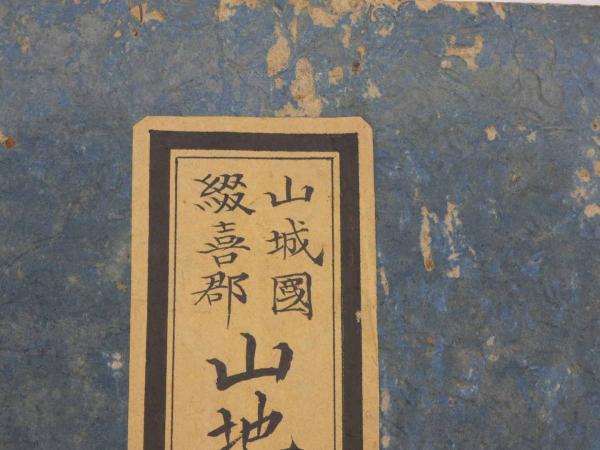 山城國
綴喜郡
山地